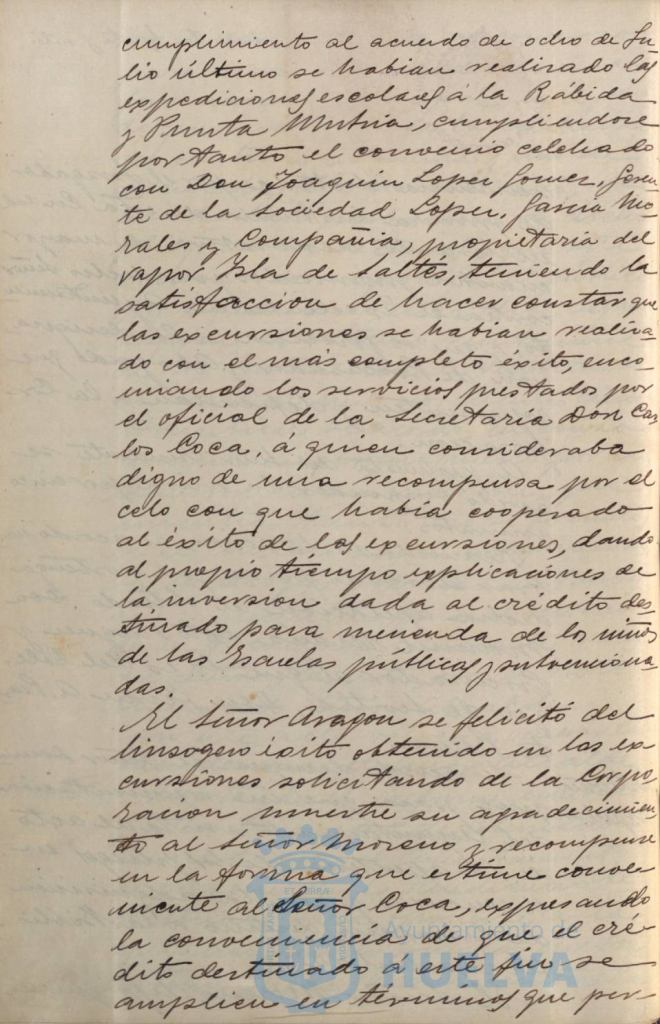 cumplimiento al acuerdo de ocho de Ju-
lio último se habian realizado las
expediciones escolares á la Rábida
y Punta Umbria, cumpliendose
por tanto el convenio celebrado
con Don Joaquin Lopez Gomez, Geren-
te de la Sociedad Lopez, Garcia Mo-
rales y Compañia, propietaria del
vapor Isla de Saltés, teniendo la
satisfaccion de hacer constar que
las excursiones se habian realiza-
do con el más completo éxito, enco-
miando los servicios prestados por
el oficial de la Secretaria Don Car-
los Coca, á quien consideraba
digno de una recompensa por el
celo con que habia cooperado
al éxito de las excursiones, dando
al propio tiempo explicaciones de
la inversion dada al crédito des-
tinado para merienda de los niños
de las Escuelas públicas y subvenciona-
das.
El Señor Aragon se felicitó del
linsogero éxito obtenido en las ex-
cursiones solicitando de la Corpo-
racion muestre su agradecimien-
to al Señor Moreno y recompense
en la forma que estime conve-
niente al Señor Coca, expresando
la conveniencia de que el cré-
dito destinado á este fin se
amplie en términos que per-
Ayuntamiento de
HUELVA